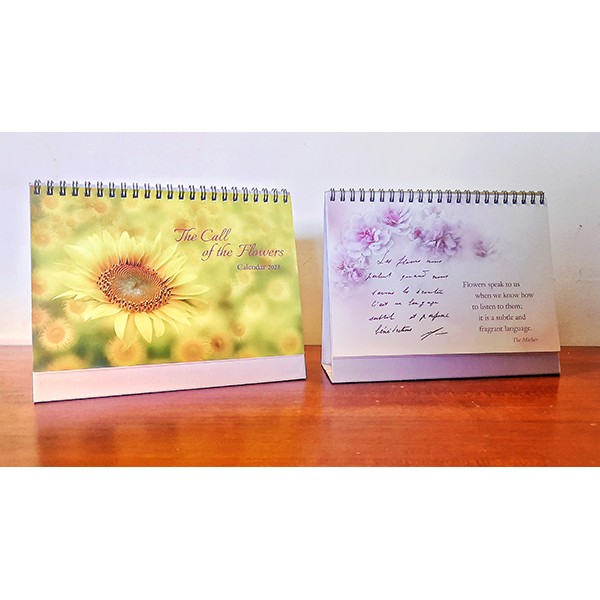 The Call
of the Flowers
Calendar 2023
Les fleurs nous
parlent quand nous
savons les écouter
C'est un langage
subtil et parfumé
Flowers speak to us
when we know how
to listen to them;
it is a subtle and
fragrant language.
The Mother